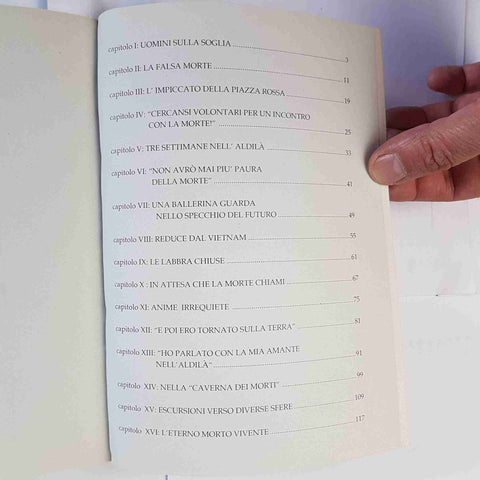 capitolo I: UOMINI SULLA SOGLIA 3
capitolo II: LA FALSA MORTE 11
capitolo III: L' IMPICCATO DELLA PIAZZA ROSSA 19
capitolo IV: "CERCANSI VOLONTARI PER UN INCONTRO
CON LA MORTE!" 25
capitolo V: TRE SETTIMANE NELL' ALDILÀ 33
capitolo VI: "NON AVRÒ MAI PIU' PAURA
DELLA MORTE" 41
capitolo VII: UNA BALLERINA GUARDA
NELLO SPECCHIO DEL FUTURO 49
capitolo VIII: REDUCE DAL VIETNAM 55
capitolo IX: LE LABBRA CHIUSE 61
capitolo X : IN ATTESA CHE LA MORTE CHIAMI 67
capitolo XI: ANIME IRREQUIETE 75
capitolo XII: "E POI ERO TORNATO SULLA TERRA" 81
capitolo XIII: "HO PARLATO CON LA MIA AMANTE
NELL'ALDILÀ" 91
capitolo XIV: NELLA "CAVERNA DEI MORTI" 99
capitolo XV: ESCURSIONI VERSO DIVERSE SFERE 109
capitolo XVI: L'ETERNO MORTO VIVENTE 117